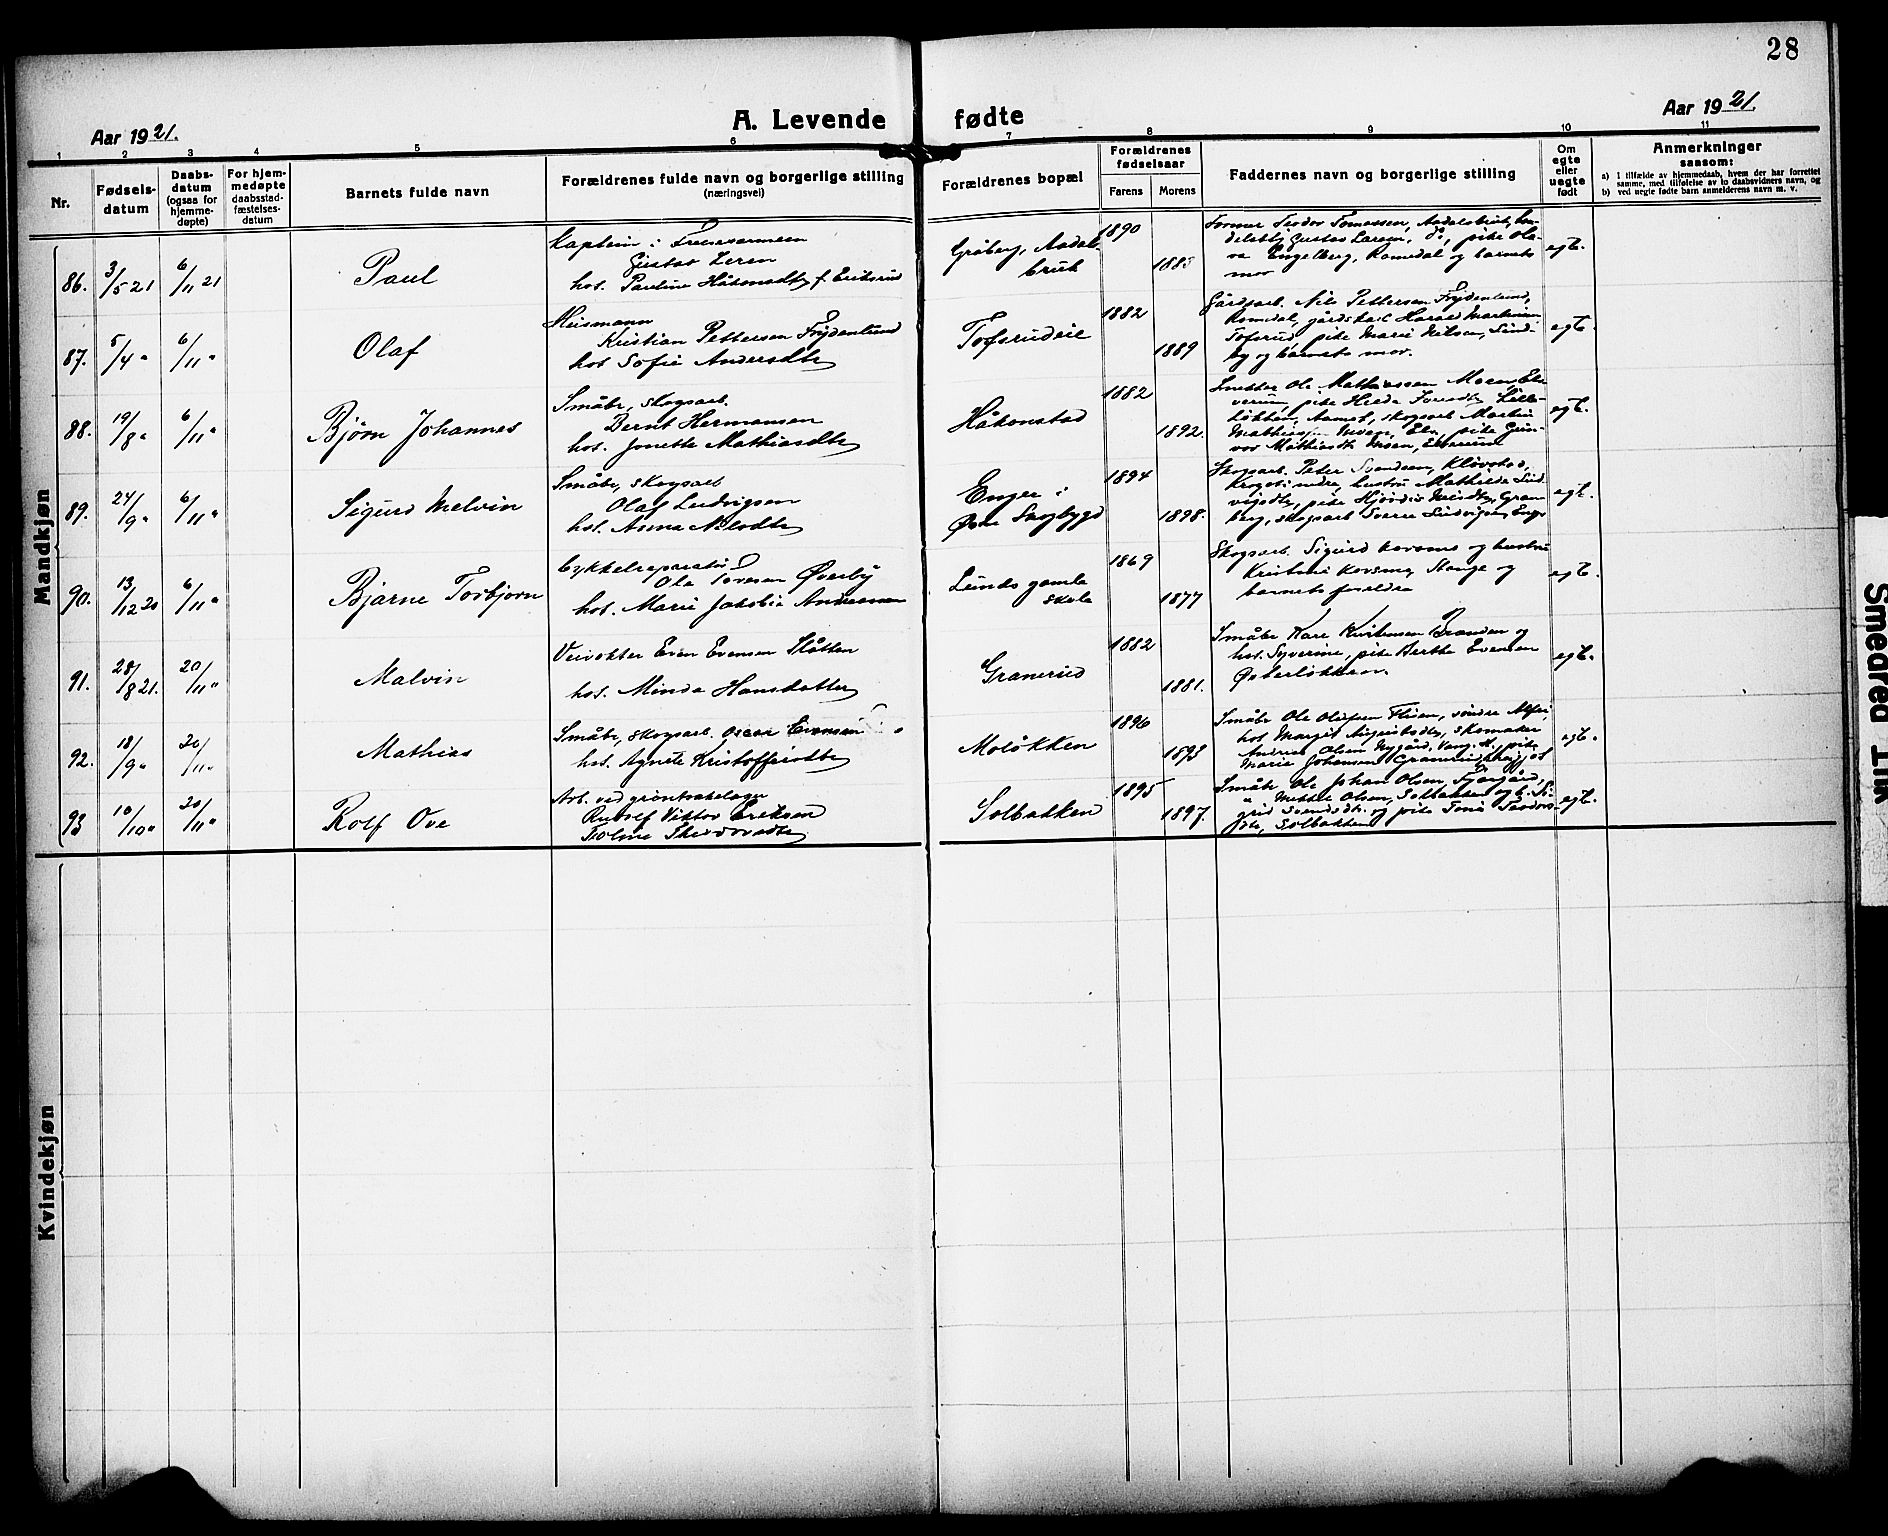 28
Aar 1921.
A. Levende fødte
Aar 1921.
1 2 3 4 5 6 7 8 9 10 11
Nr.
Fødsels-
datum
Daabs-
datum
(ogsaa for
hjemme-
døpte)
For hjem-
medøpte
daabsstad-
fæstelses-
datum
Barnets fulde navn
Forældrenes fulde navn og borgerlige stilling
(næringsvei)
Forældrenes bopæl
Forældrenes
fødselsaar
Farens Morens
Faddernes navn og borgerlige stilling
Om
egte
eller
uegte
født
Anmerkninger
saasom:
a) I tilfælde av hjemmedaab, hvem der har forrettet
samme, med tilføielse av to daabsvidners navn, og
b) ved uegte fødte barn anmelderens navn m. v.
Mandkjøn
86. 3/5 21 6/11 21 Paul
Kaptein i Frelsesarmeen
Gustav Leren
hos. Pauline Håkonsdtr f. Eriksrud
Gråberg, Aadals-
bruk
1890 1885
Former Teodor Tomassen, Aadalsbruk, han-
delsbtj Gustav Larsen, do, pike Ola-
va Engelberg, Romedal og barnets
mor
egte.
87. 5/4 " 6/11 " Olaf
Heismann
Kristian Pettersen Frydenlund
hos Sofie Andersdtr
Tofsrudeie
1882 1889
Gårdsarb. Nils Pettersen Frydenlund,
Romedal, gårdskarl Harald Martinsen
Tofsrud, pike Marie Nilsen, Lund
by og barnets mor.
egte.
88. 19/8 " 6/11 " Bjørn Johannes
Småbr, skogsarb.
Bernt Hermansen
hos. Jonette Mathiasdtr
Håkonstad
1882 1892.
Snekker Ole Mathiassen Moen, El-
verum, pike
løkken, Aamot, skogsarb Martin
Mathiassen Moen, Elv., pike Gun-
vor Mathiasdtr Moen, Elverum
egte.
89. 24/9 " 6/11 " Sigurd Melvin
Småbr, skogsarb
Olaf Ludvigsen
hos. Anna Nilsdtr
Enger i
Østre Skogbygd
1894 1898.
Skogsarb. Peter Svendsen, Kløvstad,
hustru Mathilde Lud-
vigsdtr, pike Hjørdis Gran
berg, skogsarb Sverre Ludvigsen, Enger
egte.
90. 13/12 20 6/11 " Bjarne Torbjørn
Cykkelreparatør
Ole Iversen Øverby
hos. Marie Jakobie Andreassen
Lunds gamle
skole
1869 1877
Skogsarb. Sigurd Korsmo og hustru
Kristine Korsmo, Stange og
barnets foreldre
egte.
91. 28/8 21. 20/11 " Malvin
Veivokter Even Evensen Slåtten
hos. Minda Hansdatter
Granerud
1882 1881.
Småbr Kare Kristensen Branden og
hos. Syverine, pike Berthe Evensen
Østerløkken.
egte.
92. 18/9 " 20/11 " Mathias
Småbr, skogsarb. Oscar Evensen
hos. Agnete Kristoffersdtr
Moløkken
1896 1893
Småbr Ole Olufsen Flisen, søndre
hos Margit Augustsdtr, skomaker
Andreas Olsen Nygård, Vang H., pike
Marie Johansen
egte.
93 10/10 " 20/11 " Rolf Ove
Arb. ved grøntsakslager
Rudolf Viktor Eriksen
Toline Theodorsdtr
Solbakken
1895 1897.
Småbr Ole Johan Olsen Fjærgård,
" Mikkel Olsen, Solbakken og h. Si-
grid Svendsdtr. og pike Tina Teodors-
dtr, Solbakken
egte.
Kvindekjøn
Smedred Ink